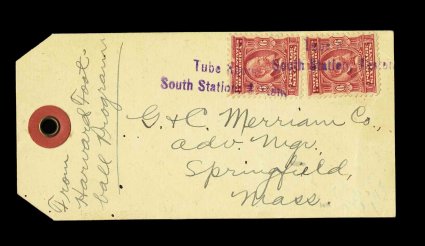 Tube
South Station
South Station
G. & C. Merriam Co.,
Adv. Mgr.
Springfield,
Mass.
From
Harvard Foot-
ball Program